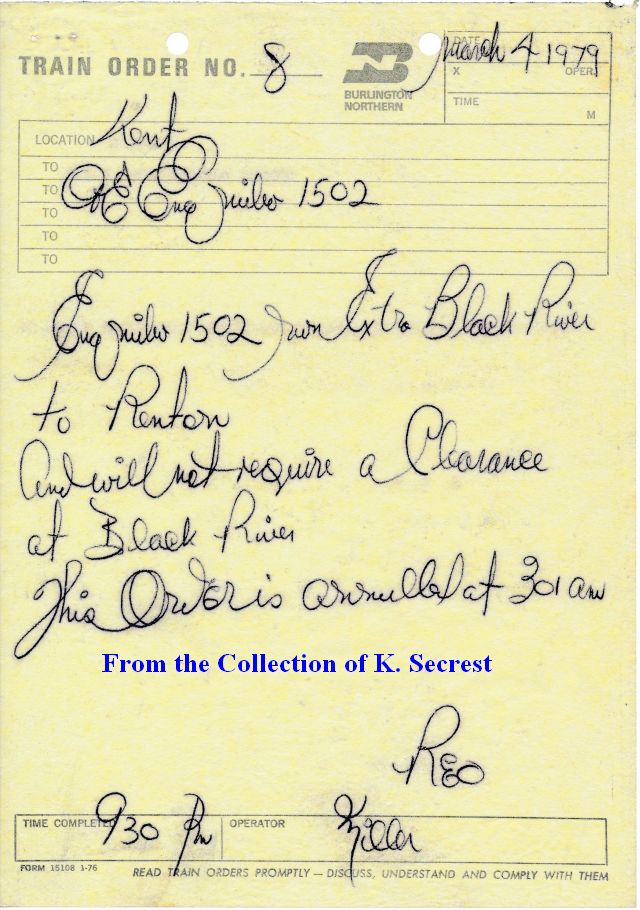 TRAIN ORDER NO. 8
BURLINGTON
NORTHERN
DATE March 4 1979
X OPER.
TIME M
LOCATION Kent
TO
TO C&E Eng Milw 1502
TO
TO
TO
Eng Milw 1502 run Extra Black River
to Renton
And will not require a Clearance
at Black River
This Order is annulled at 301 am
From the Collection of K. Secrest
REO
TIME COMPLETED 930 Pm OPERATOR Miller
FORM 15108 1-76
READ TRAIN ORDERS PROMPTLY — DISCUSS, UNDERSTAND AND COMPLY WITH THEM